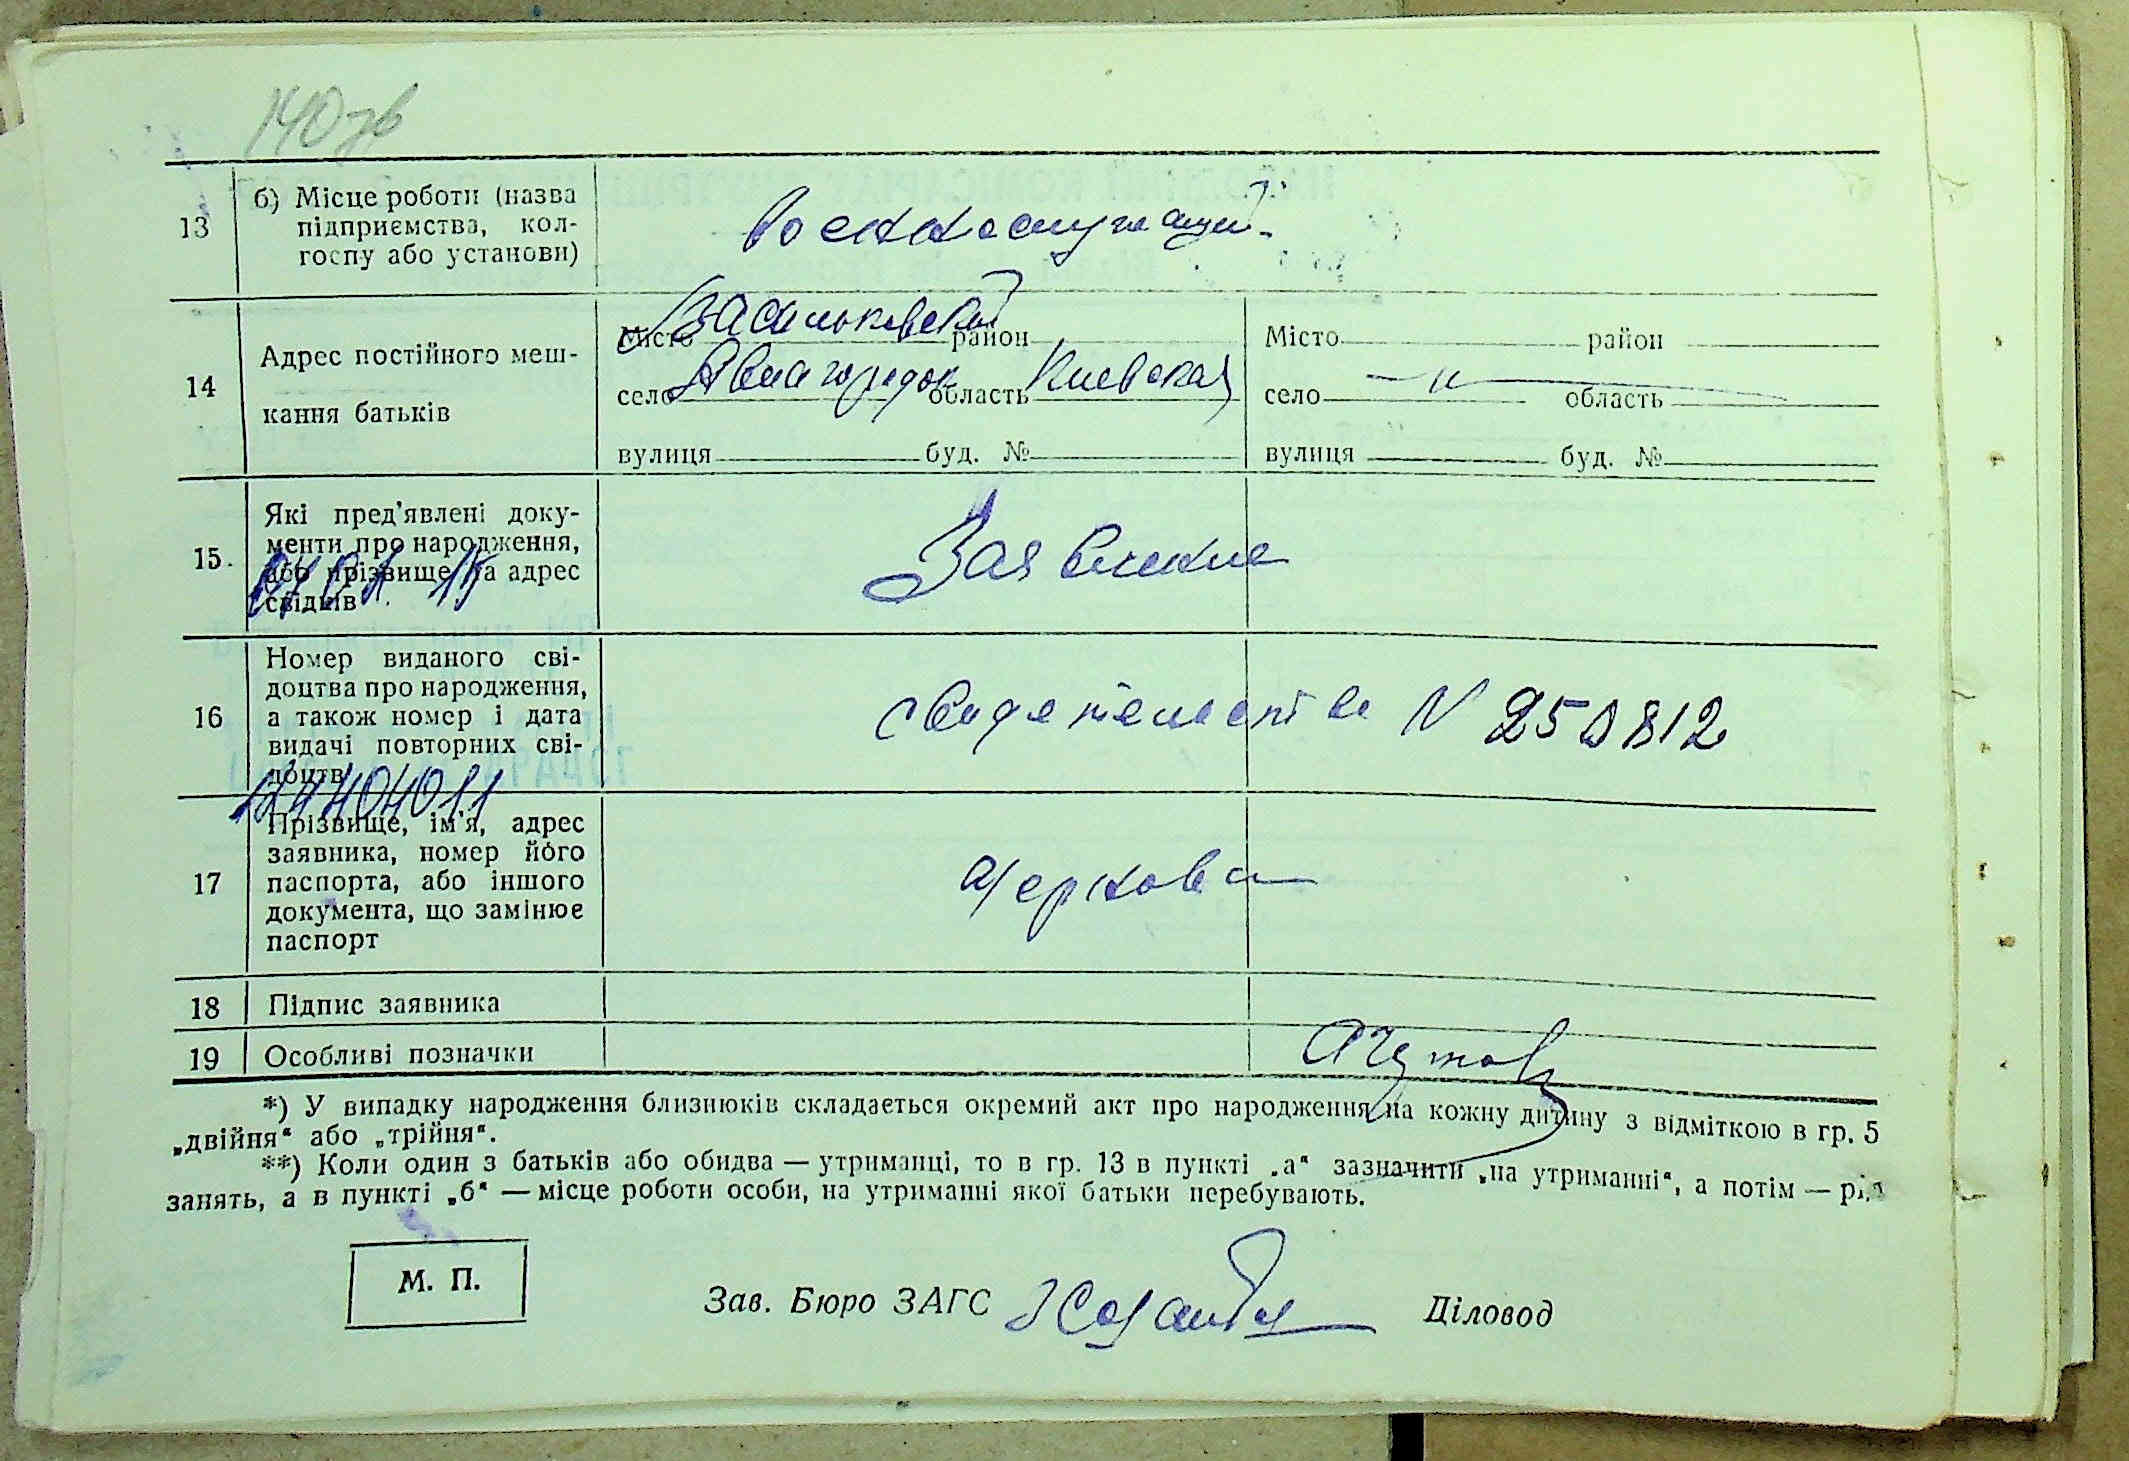 140 зв
13
б) Місце роботи (назва
підприємства, кол-
госпу або установи)
Военнослужащий.
14
Адрес постійного меш-
кання батьків
Васильковский
Місто район
село Авиагородок область Киевская
вулиця буд. №
Місто район
село — " — область
вулиця буд. №
15.
Які пред'явлені доку-
менти про народження,
або прізвище та адрес
свідків
Заявление
16
Номер виданого сві-
доцтва про народження,
а також номер і дата
видачі повторних сві-
доцтв
свидетельство N 250812
17
Прізвище, ім'я, адрес
заявника, номер його
паспорта, або іншого
документа, що замінює
паспорт
18
Підпис заявника
19
Особливі позначки
*) У випадку народження близнюків складається окремий акт про народження на кожну дитину з відміткою в гр. 5
„двійня“ або „трійня“.
**) Коли один з батьків або обидва — утриманці, то в гр. 13 в пункті „а“ зазначити „на утриманні“, а потім — рід
занять, а в пункті „б“ — місце роботи особи, на утриманні якої батьки перебувають.
М. П.
Зав. Бюро ЗАГС
Діловод